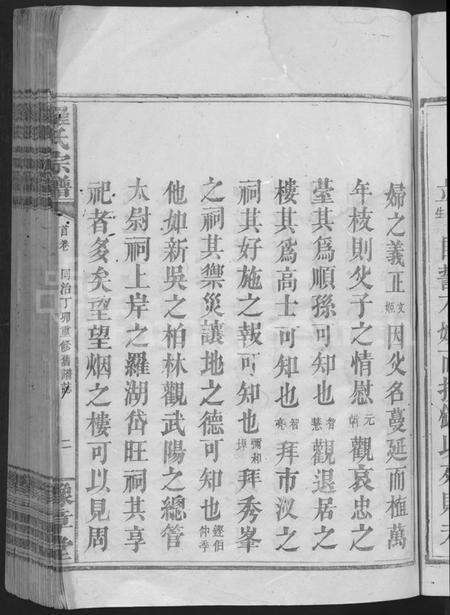 婦之義正文姬因父名蔓延而植萬
年枝則父子之情慰元斬觀哀忠之
臺其為順孫可知也智慧觀退居之
樓其為高士可知也智亮拜市汊之
祠其好施之報可知也彌和埠拜秀峯
之祠其禦災讓地之德可知也鏗伯仲季
他如新吳之柏林觀武陽之總管
太尉祠上岸之羅湖岱旺祠其享
祀者多矣望望烟之樓可以見周
羅氏宗譜
首卷
同治丁卯重修舊譜誌
二
豫章堂